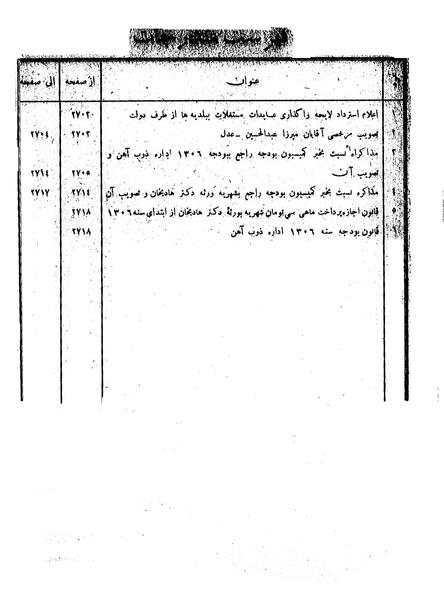 فهرست مندرجات
عنوان از صفحه الی صفحه
۱ اعلام استرداد لایحه واگذاری عایدات مستغلات ببلدیه ها از طرف دولت ۲۷۰۲
۲ تصویب مرخصی آقایان میرزا عبدالحسین ـ عدل ۲۷۰۲ ۲۷۰٤
۳ مذاکرات نسبت بخبر کمیسیون بودجه راجع ببودجه ۱۳۰۶ اداره ذوب آهن و
تصویب آن ۲۷۰۵ ۲۷۱٤
٤ مذاکره نسبت بخبر کمیسیون بودجه راجع بشهریه ورثه دکتر هادیخان و تصویب آن ۲۷۱٤ ۲۷۱۷
۵ قانون اجازه پرداخت ماهی سی تومان شهریه بورثهٔ دکتر هادیخان از ابتدای سنه ۱۳۰۶ ۲۷۱۸
۶ قانون بودجه سنه ۱۳۰۶ اداره ذوب آهن ۲۷۱۸